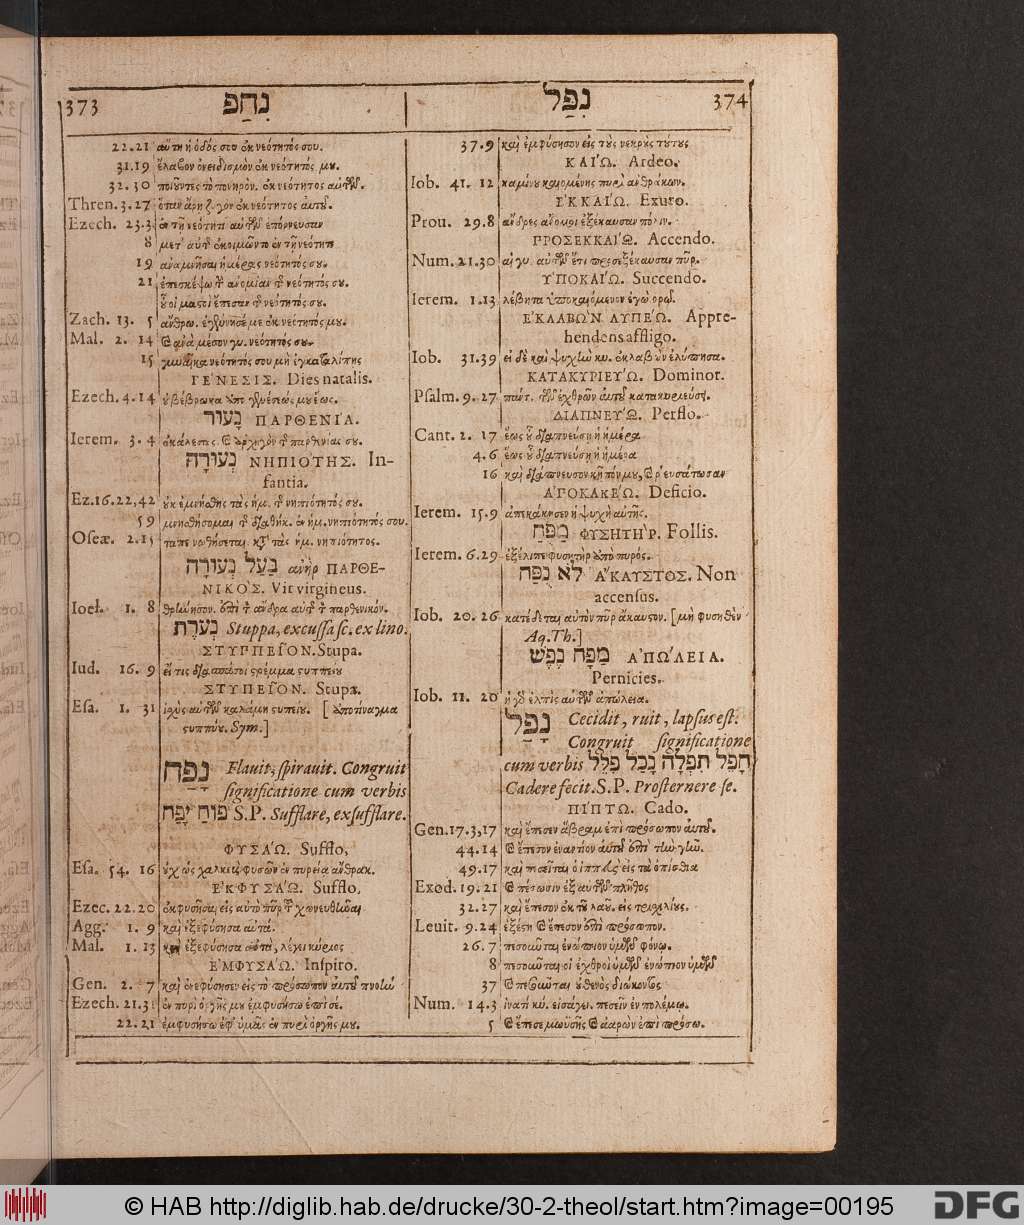 373 נִחַפ
22.21 αὕτη ἡ ὁδός σου ἐκ νεότητός σου.
31.19 ἔλαβον ὀνειδισμὸν ἐκ νεότητός μου.
32.30 ποιοῦντες τὸ πονηρὸν. ἐκ νεότητος αὐτῶν.
Thren. 3.27 ὅταν ἄρῃ ζυγὸν ἐκ νεότητος αὐτοῦ.
Ezech. 23.3 ἐν τῇ νεότητι αὐτῶν ἐπόρνευσαν
8 μετ' αὐτῆς ἐκοιμῶντο ἐν τῇ νεότητι
19 ἀναμνῆσαι ἡμέρας νεότητός σου.
21 ἐπεσκέψω τὴν ἀνομίαν τῆς νεότητός σου.
οὗ οἱ μαστοὶ ἔπεσαν τῆς νεότητός σου.
Zach. 13. 5 ἄνθρω. ἐγέννησέ με ἐκ νεότητός μου.
Mal. 2. 14 καὶ ἀνὰ μέσον γυ. νεότητός σου.
15 γυναῖκα νεότητός σου μὴ ἐγκαταλίπῃς
ΓΕ'ΝΕΣΙΣ. Dies natalis.
Ezech. 4.14 οὐ βέβρωκα ἀπὸ γενέσεώς μου ἕως.
נָעוּר ΠΑΡΘΕΝΙ'Α.
Ierem. 3. 4 ἐκάλεσας. καὶ ἀρχηγὸν τῆς παρθενίας σου.
נְעוּרָה ΝΗΠΙΟΤΗΣ. In-
fantia.
Ez. 16.22,42 οὐκ ἐμνήσθης τὰς ἡμ. τῆς νηπιότητός σου.
59 μνησθήσομαι τῆς διαθήκ. ἐν ἡμ. νηπιότητός σου.
Oseæ. 2.15 ταπεινωθήσεται κατὰ τὰς ἡμ. νηπιότητος.
בַעַל נְעוּרָה ἀνὴρ ΠΑΡΘΕ-
ΝΙΚΟ'Σ. Vir virgineus.
Ioel. 1. 8 θρήνησον. ἐπὶ τὸν ἄνδρα αὐτῆς τὸν παρθενικόν.
נְעֹרֶת Stuppa, excussa sc. ex lino.
ΣΤΥΠΠΕΙ͂ΟΝ. Stupa.
Iud. 16. 9 εἴ τις διασπάσοι στρέμμα στυππίου
ΣΤΥΠΕΙ͂ΟΝ. Stupa.
Esa. 1. 31 ἰσχὺς αὐτῶν καλάμη στυπείου. [ἀποτίναγμα
στυππύου. Sym.]
נָפַח Flauit, spirauit. Congruit
significatione cum verbis
פוּחַ יָפַח S.P. Sufflare, exsufflare.
ΦΥΣΑ'Ω. Sufflo.
Esa. 54. 16 οὐχ ὡς χαλκεὺς φυσῶν ἐν πυρεία ἄνθρακ.
ΕΚΦΥΣΑ'Ω. Sufflo.
Ezec. 22.20 ἐκφυσῆσαι εἰς αὐτὸ πῦρ τοῦ χωνευθῆναι
Agg. 1. 9 καὶ ἐξεφύσησα αὐτά.
Mal. 1. 13 καὶ ἐξεφύσησα αὐτὰ, λέγει κύριος
ΕΜΦΥΣΑ'Ω. Inspiro.
Gen. 2. 7 καὶ ἐνεφύσησεν εἰς τὸ πρόσωπον αὐτοῦ πνοὴν
Ezech. 21.31 ἐν πυρὶ ὀργῆς μου ἐμφυσήσω ἐπὶ σέ.
22.21 ἐμφυσήσω ἐφ' ὑμᾶς ἐν πυρὶ ὀργῆς μου.
נִפַּל 374
37.9 καὶ ἐμφύσησον εἰς τοὺς νεκροὺς τούτους
ΚΑΙ'Ω. Ardeo.
Iob. 41. 12 καμίνου καιομένης πυρὶ ἀνθράκων.
ΕΚΚΑΙ'Ω. Exuro.
Prou. 29.8 ἄνδρες ἄνομοι ἐξέκαυσαν πόλιν.
ΠΡΟΣΕΚΚΑΙ'Ω. Accendo.
Num. 21.30 αἱ γυ. αὐτῶν ἔτι προσεξέκαυσαν πῦρ.
ΥΠΟΚΑΙ'Ω. Succendo.
Ierem. 1.13 λέβητα ὑποκαιόμενον ἐγὼ ὁρῶ.
ΕΚΛΑΒΩ'Ν ΛΥΠΕ'Ω. Appre-
hendens affligo.
Iob. 31.39 εἰ δὲ καὶ ψυχὴν κυ. ἐκλαβὼν ἐλύπησα.
ΚΑΤΑΚΥΡΙΕΥ'Ω. Dominor.
Psalm. 9. 27 πάντ. τῶν ἐχθρῶν αὐτοῦ κατακυριεύσει.
ΔΙΑΠΝΕΥ'Ω. Perflo.
Cant. 2. 17 ἕως οὗ διαπνεύσῃ ἡ ἡμέρα
4.6 ἕως οὗ διαπνεύσῃ ἡ ἡμέρα
16 καὶ διάπνευσον κῆπόν μου, καὶ ῥευσάτωσαν
ΑΠΟΚΑΚΕ'Ω. Deficio.
Ierem. 15.9 ἀπεκάκησεν ἡ ψυχὴ αὐτῆς.
מַפֻּחַ ΦΥΣΗΤΗ'Ρ. Follis.
Ierem. 6.29 ἐξέλιπε φυσητὴρ ἀπὸ πυρός.
לֹא נֻפַּח Α'ΚΑΥΣΤΟΣ. Non
accensus.
Iob. 20. 26 κατέδεται αὐτὸν πῦρ ἄκαυστον. [μὴ φυσηθὲν
Aq. Th.]
מַפַּח נֶפֶשׁ ΑΠΩ'ΛΕΙΑ.
Pernicies.
Iob. 11. 20 ἡ γὰρ ἐλπὶς αὐτῶν ἀπώλεια.
נָפַל Cecidit, ruit, lapsus est.
Congruit significatione
cum verbis חָפַל תִּפְלָה נָבַל פִּלֵּל
Cadere fecit. S.P. Prosternere se.
ΠΙ'ΠΤΩ. Cado.
Gen. 17.3,17 καὶ ἔπεσεν ἅβραμ ἐπὶ πρόσωπον αὐτοῦ.
44.14 καὶ ἔπεσον ἐναντίον αὐτοῦ ἐπὶ τὴν γῆν.
49.17 καὶ πεσεῖται ὁ ἱππεὺς εἰς τὰ ὀπίσθια
Exod. 19.21 καὶ πέσωσιν ἐξ αὐτῶν πλῆθος
32.27 καὶ ἔπεσον ἐκ τοῦ λαοῦ. εἰς τρισχιλίους.
Leuit. 9.24 ἐξέστη καὶ ἔπεσον ἐπὶ πρόσωπον.
26.7 πεσοῦνται ἐνώπιον ὑμῶν φόνῳ.
8 πεσοῦνται οἱ ἐχθροὶ ὑμῶν ἐνώπιον ὑμῶν
37 καὶ πεσοῦνται οὐθενὸς διώκοντος
Num. 14.3 ἱνατί κύ. εἰσάγει. πεσεῖν ἐν πολέμῳ.
5 καὶ ἔπεσε μωϋσῆς καὶ ἀαρὼν ἐπὶ πρόσω.
© HAB http://diglib.hab.de/drucke/30-2-theol/start.htm?image=00195
DFG